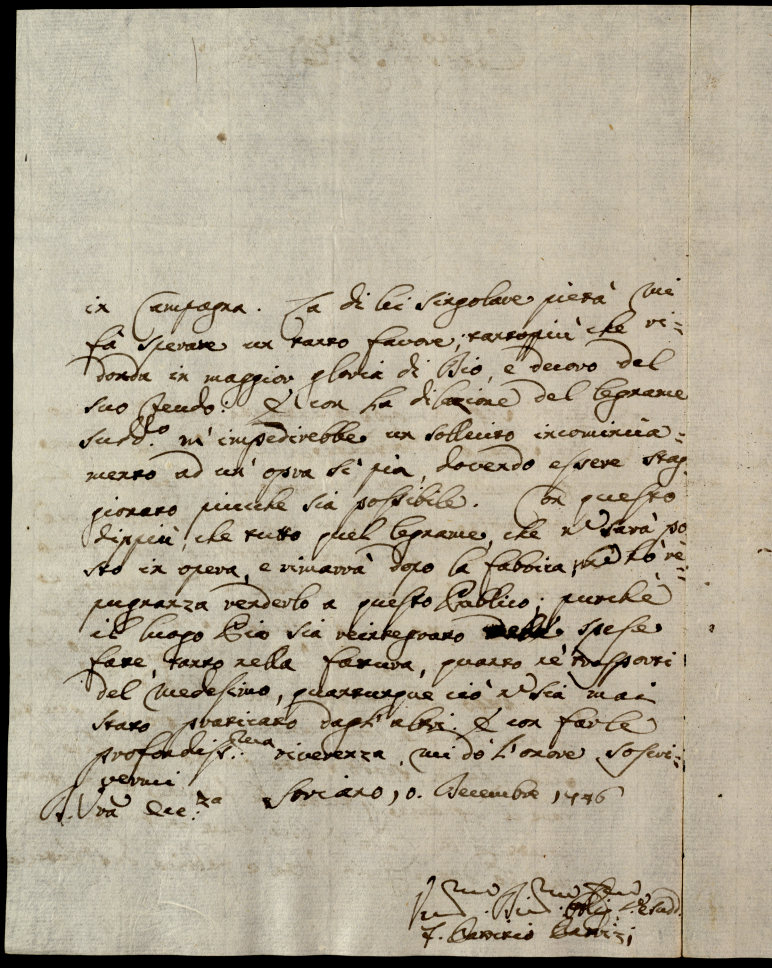 in Campagna. La di lei singolare pietà mi
fà sperare un tanto favore; tantoppiù che ri=
donda in maggior gloria di Dio, e decoro del
suo feudo: E con la dilazione del legname
sudd.o m'impedirebbe un sollecito incomincia=
mento ad un' opra sì pia, dovendo essere stag=
gionato piucche sia possibile. Con questo
dippiù, che tutto quel legname, che n sarà po
sto in opera, e rimarrà dopo la fabbrica, hò re=
pugnanza venderlo a questo Publico; purchè
il luogo Pio sia reintegrato delle spese
fatte tanto nella fattura, quanto ne' trasporti
del medesimo, quantunque ciò n sia mai
stato praticato dagl' altri. E con farle
profondiss.ma riverenza, mi dò l'onore soscri=
vermi
Vra Ecc.za Soriano 10. Decembre 1776